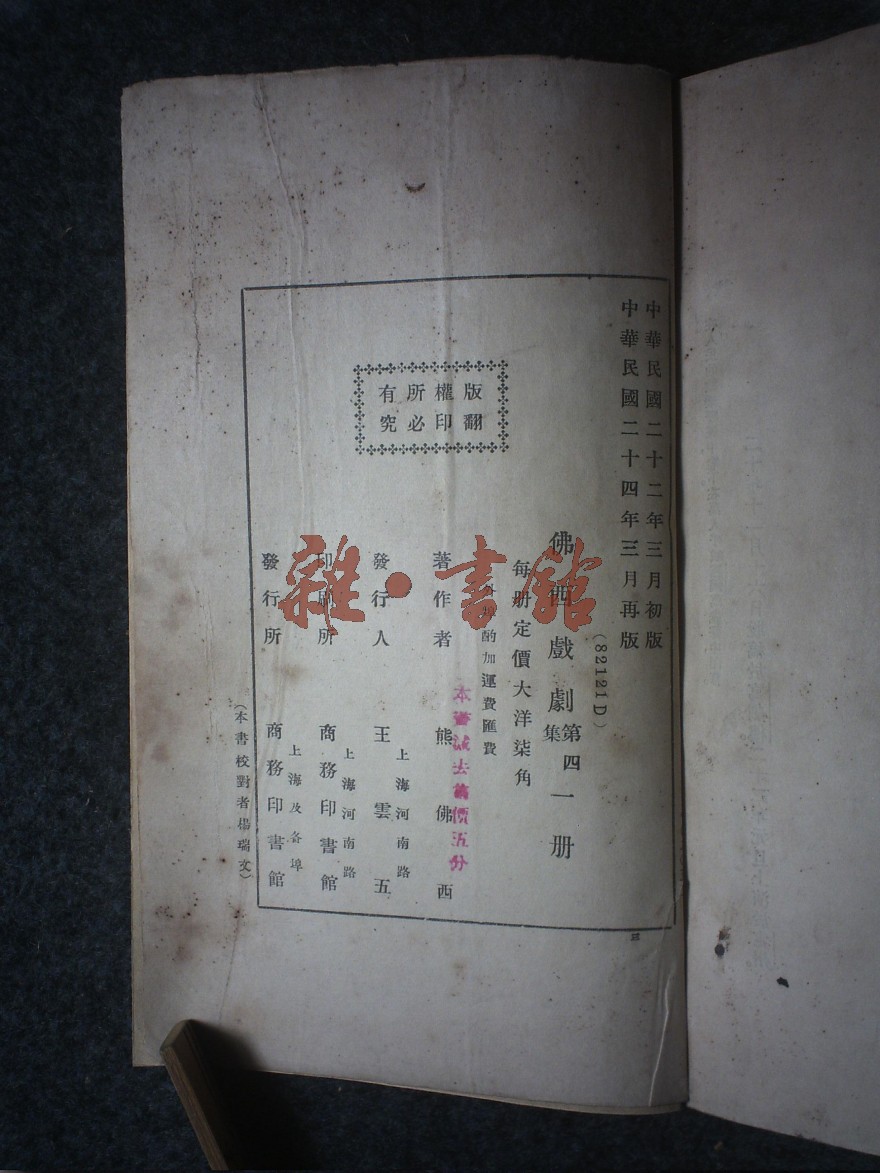 中華民國二十二年三月初版
中華民國二十四年三月再版
(82121D)
佛西戲劇第四集一册
每册定價大洋柒角
酌加運費匯費
本書減去舊價五分
著作者 熊佛西
發行人 王雲五
上海河南路
印刷所 商務印書館
上海河南路
發行所 商務印書館
上海及各埠
版權所有
翻印必究
(本書校對者楊瑞文)
雜·書館